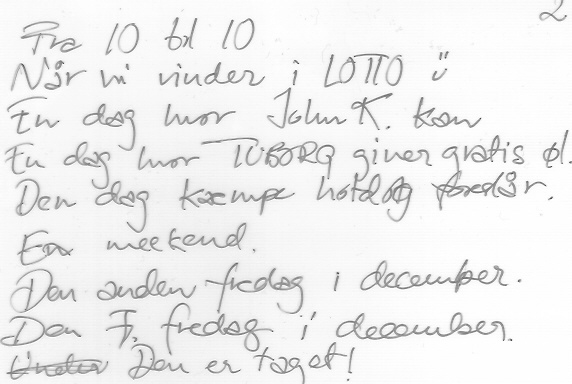 2
Fra 10 til 10
Når vi vinder i LOTTO ü
En dag hvor John K. kan
En dag hvor TUBORG giver gratis øl.
Den dag kæmpe hotdog foreslår.
En weekend.
Den anden fredag i december.
Den 7. fredag i december.
Under Den er taget!